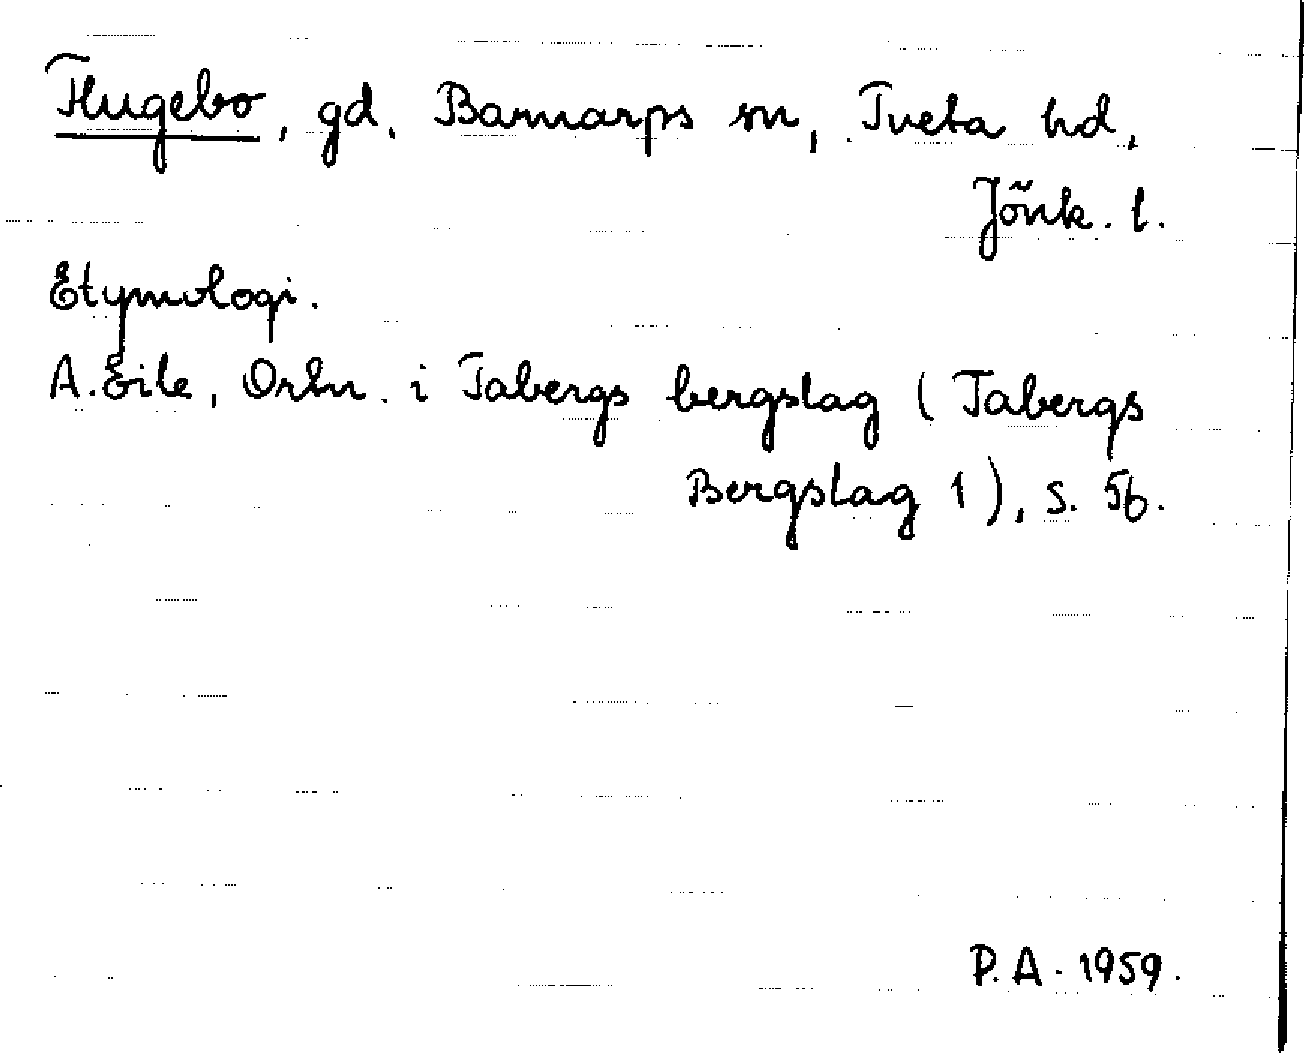 Flugebo, gd. Barnarps sn, Tveta hd,
Jönk. l.
Etymologi.
A. Eile, Ortn. i Tabergs bergslag (Tabergs
Bergslag 1), s. 56.
P. A. 1959.